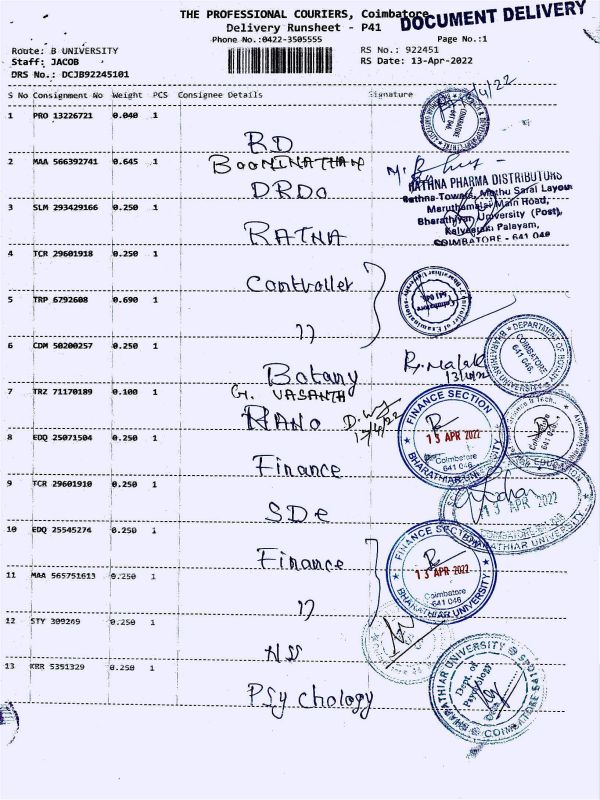 THE PROFESSIONAL COURIERS, Coimbatore
DOCUMENT DELIVERY
Delivery Runsheet - P41
Phone No.:0422-3505555
Page No.:1
Route: B UNIVERSITY
RS No.: 922451
Staff: JACOB
RS Date: 13-Apr-2022
DRS No.: DCJB92245101
S No Consignment No Weight PCS Consignee Details Signature
1 PRO 13226721 0.040 1
RD
COIMBATORE
641 046
2 MAA 566392741 0.645 1
BOOMINATHAN
DRDO
RATHNA PHARMA DISTRIBUTORS
Rathna Towers, Muthu Sarai Layout
Maruthamalai Main Road,
Bharathiyar University (Post),
Kalveeram Palayam,
COIMBATORE - 641 046
3 SLM 293429166 0.250 1
RATNA
4 TCR 29601918 0.250 1
Controller
Controller of Examinations
Bharathiar University
Coimbatore
641 046
5 TRP 6792608 0.690 1
11
6 CDM 50200257 0.250 1
Botany
13/4/22
DEPARTMENT OF
BHARATHIAR UNIVERSITY
COIMBATORE
641 046
7 TRZ 71170189 0.100 1
G. VASANTH
NANO
13/4/22
FINANCE SECTION
13 APR 2022
Coimbatore
641 046
BHARATHIAR UNIVERSITY
8 EDQ 25071504 0.250 1
Finance
9 TCR 29601910 0.250 1
SDE
EDUCATION
13 APR 2022
BHARATHIAR UNIVERSITY
10 EDQ 25545274 0.250 1
Finance
FINANCE SECTION
13 APR 2022
Coimbatore
641 046
BHARATHIAR UNIVERSITY
11 MAA 565751613 0.250 1
11
12 STY 309249 0.250 1
NSS
13 KRR 5351329 0.250 1
Psychology
BHARATHIAR UNIVERSITY
Dept. of
Psychology
COIMBATORE